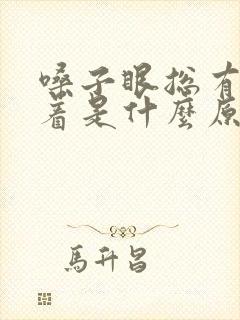 嗓子眼总有
着是什麼原
馬升昌